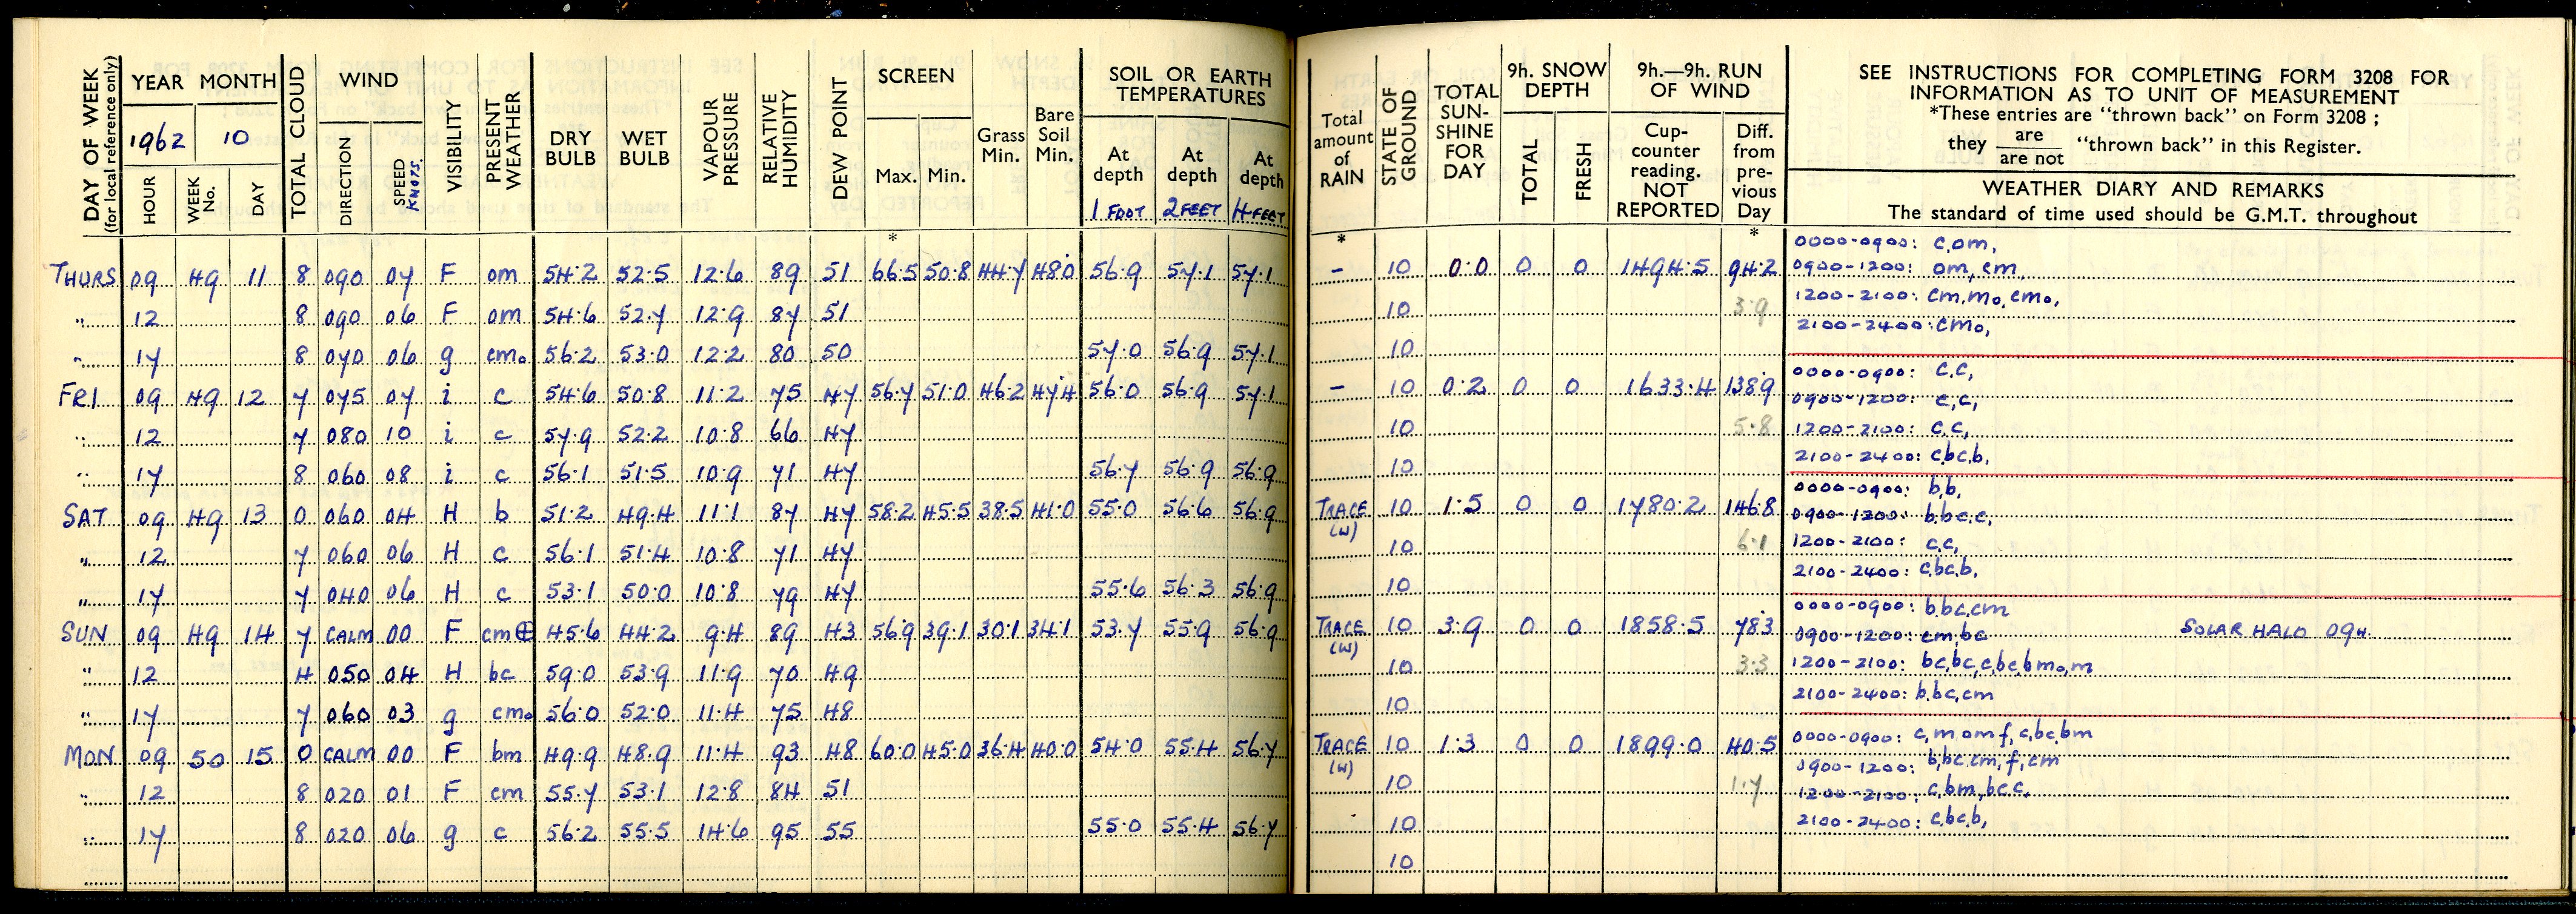 DAY OF WEEK
(for local reference only)
YEAR MONTH
1962 10
HOUR WEEK No. DAY
TOTAL CLOUD
WIND
DIRECTION SPEED KNOTS.
VISIBILITY
PRESENT WEATHER
DRY BULB
WET BULB
VAPOUR PRESSURE
RELATIVE HUMIDITY
DEW POINT
SCREEN
Max. Min.
*
Grass Min.
Bare Soil Min.
SOIL OR EARTH TEMPERATURES
At depth At depth At depth
1 FOOT 2 FEET 4 FEET
Total amount of RAIN
*
STATE OF GROUND
TOTAL SUN-SHINE FOR DAY
9h. SNOW DEPTH
TOTAL FRESH
9h.—9h. RUN OF WIND
Cup-counter reading. NOT REPORTED
Diff. from pre-vious Day
*
SEE INSTRUCTIONS FOR COMPLETING FORM 3208 FOR
INFORMATION AS TO UNIT OF MEASUREMENT
*These entries are "thrown back" on Form 3208 ;
they are / are not "thrown back" in this Register.
WEATHER DIARY AND REMARKS
The standard of time used should be G.M.T. throughout
THURS 09 49 11 8 090 07 F om 54.2 52.5 12.6 89 51 66.5 50.8 44.7 48.0 56.9 57.1 57.1 – 10 0.0 0 0 1494.5 94.2
0000-0900: c,om,
0900-1200: om, cm,
" 12 8 090 06 F om 54.6 52.7 12.9 87 51 10 3.9
1200-2100: cm,mo,cmo,
2100-2400: cmo,
" 17 8 070 06 g cmo 56.2 53.0 12.2 80 50 57.0 56.9 57.1 10
FRI 09 49 12 7 075 07 i c 54.6 50.8 11.2 75 47 56.7 51.0 46.2 47.4 56.0 56.9 57.1 – 10 0.2 0 0 1633.4 138.9
0000-0900: c,c,
0900-1200: c,c,
" 12 7 080 10 i c 57.9 52.2 10.8 66 47 10 5.8
1200-2100: c,c,
2100-2400: c,bc,b,
" 17 8 060 08 i c 56.1 51.5 10.9 71 47 56.7 56.9 56.9 10
SAT 09 49 13 0 060 04 H b 51.2 49.4 11.1 87 47 58.2 45.5 38.5 41.0 55.0 56.6 56.9 TRACE (W) 10 1.5 0 0 1780.2 146.8
0000-0900: b,b,
0900-1200: b,bc,c,
" 12 7 060 06 H c 56.1 51.4 10.8 71 47 10 6.1
1200-2100: c,c,
2100-2400: c,bc,b,
" 17 7 040 06 H c 53.1 50.0 10.8 79 47 55.6 56.3 56.9 10
SUN 09 49 14 7 CALM 00 F cm⊕ 45.6 44.2 9.4 89 43 56.9 39.1 30.1 34.1 53.7 55.9 56.9 TRACE (W) 10 3.9 0 0 1858.5 78.3
0000-0900: b,bc,cm
0900-1200: cm,bc SOLAR HALO 09H.
" 12 4 050 04 H bc 59.0 53.9 11.9 70 49 10 3.3
1200-2100: bc,bc,c,bc,bmo,m
2100-2400: b,bc,cm
" 17 7 060 03 g cmo 56.0 52.0 11.4 75 48 10
MON 09 50 15 0 CALM 00 F bm 49.9 48.9 11.4 93 48 60.0 45.0 36.4 40.0 54.0 55.4 56.7 TRACE (W) 10 1.3 0 0 1899.0 40.5
0000-0900: c,m om f,c,bc,bm
0900-1200: b,bc,cm,f,cm
" 12 8 020 01 F cm 55.7 53.1 12.8 84 51 10 1.7
1200-2100: c,bm,bc,c,
2100-2400: c,bc,b,
" 17 8 020 06 g c 56.2 55.5 14.6 95 55 55.0 55.4 56.7 10
10